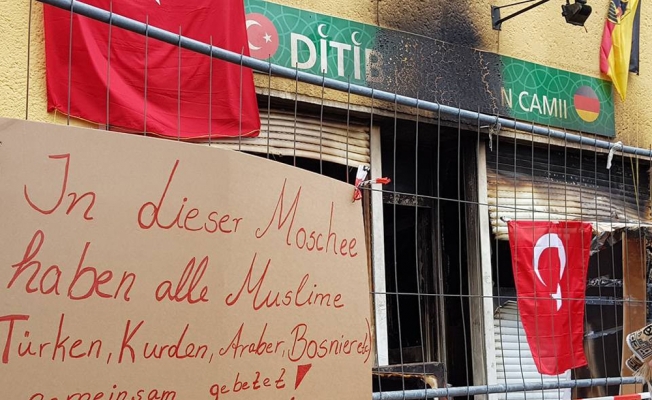 DİTİB
N CAMII
In dieser Moschee
haben alle Muslime
Türken, Kurden, Araber, Bosnier etc)
gemeinsam gebetet!